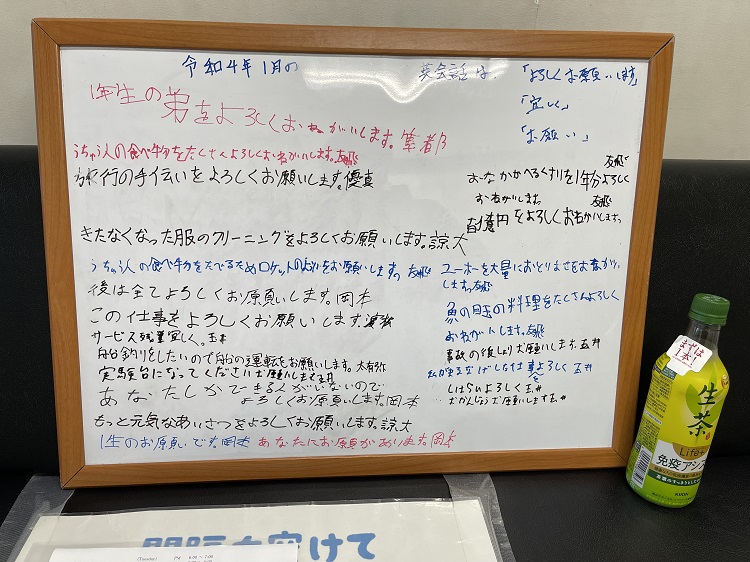 令和4年1月の
英会話は、
「よろしくお願いします」
「宜しく」
「お願い」
1年生の弟をよろしくおねがいします。
うちゅう人の食べ物をたくさんよろしくおねがいします。友飛
旅行の手伝いをよろしくお願いします。優真
きたなくなった服のクリーニングをよろしくお願いします。諒大
うちゅう人の食べ物をたべるためロケットのよういをお願いします。友飛
後は全てよろしくお願いします。岡本
この仕事をよろしくお願いします。
サービス残業宜しく。玉木
船釣りをしたいので船の運転をお願いします。太有弥
実験台になってくださいお願いします玉井
あなたしかできる人がいないので
よろしくお願いします。岡本
もっと元気なあいさつをよろしくお願いします。諒大
1生のお願いです。岡本
あなたにお願いがあります。岡本
友飛
1年分よろしく
おねがいします。
友飛
億円をよろしくおねがいします。
ユーホーを大量に
します。友飛
魚の目玉の料理をたくさんよろしく
おねがいします。友飛
事故の後しょりお願いします。玉井
しはらいよろしく玉井
おかんじょうお願いします玉井
まずは
1本!
生茶
Life+
免疫アシスト
KIRIN
間隔を空けて
(Tuesday) PM 6:00～7:00